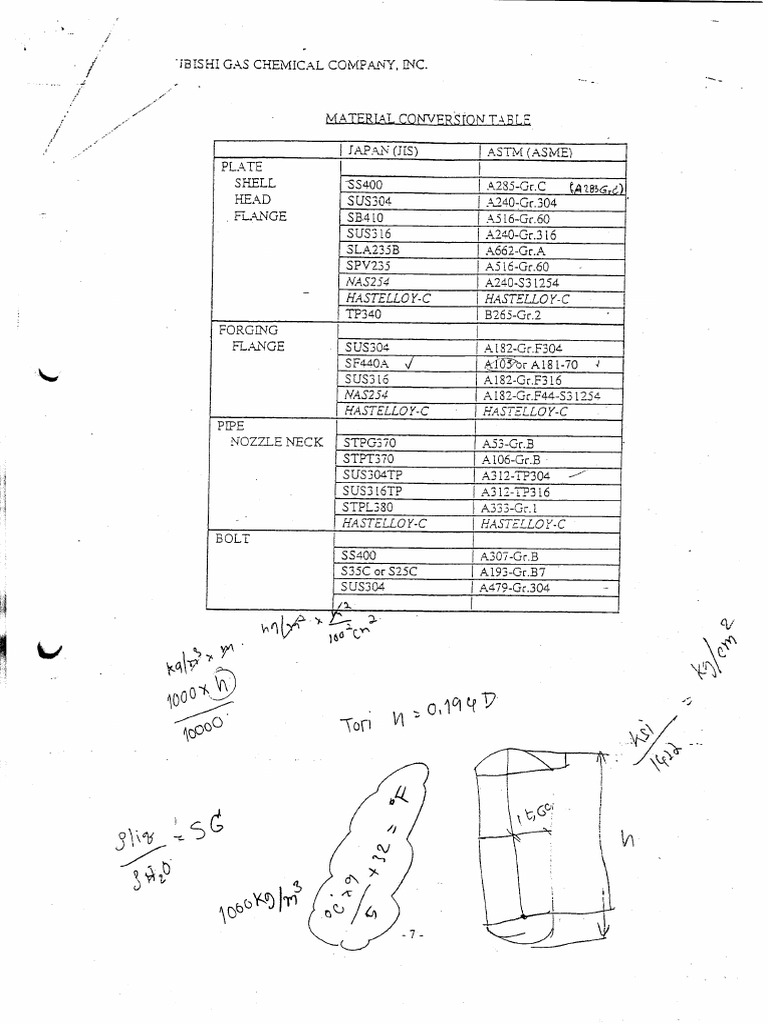 IBISHI GAS CHEMICAL COMPANY, INC.
MATERIAL CONVERSION TABLE
JAPAN (JIS) ASTM (ASME)
PLATE
SHELL SS400 A285-Gr.C (A283Gr.C)
HEAD SUS304 A240-Gr.304
FLANGE SB410 A516-Gr.60
SUS316 A240-Gr.316
SLA235B A662-Gr.A
SPV235 A516-Gr.60
NAS254 A240-S31254
HASTELLOY-C HASTELLOY-C
TP340 B265-Gr.2
FORGING
FLANGE SUS304 A182-Gr.F304
SF440A ✓ A105 or A181-70
SUS316 A182-Gr.F316
NAS254 A182-Gr.F44-S31254
HASTELLOY-C HASTELLOY-C
PIPE
NOZZLE NECK STPG370 A53-Gr.B
STPT370 A106-Gr.B
SUS304TP A312-TP304
SUS316TP A312-TP316
STPL380 A333-Gr.1
HASTELLOY-C HASTELLOY-C
BOLT
SS400 A307-Gr.B
S35C or S25C A193-Gr.B7
SUS304 A479-Gr.304
kg/m² ×
100² cm²
kg/m³ × m
1000 × h
10000
Tori h = 0.194D
ksi
= kg/cm²
ρliq = SG
ρH₂O
1000 kg/m³
°C × 9
5
+ 32 = °F
h
-7-